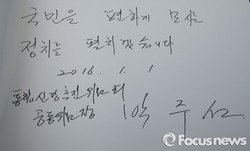 국민을 편하게 모시는
정치를 펼치겠습니다
2016. 1. 1
통합신당추진위원회
공동위원장 박주선
Focus news